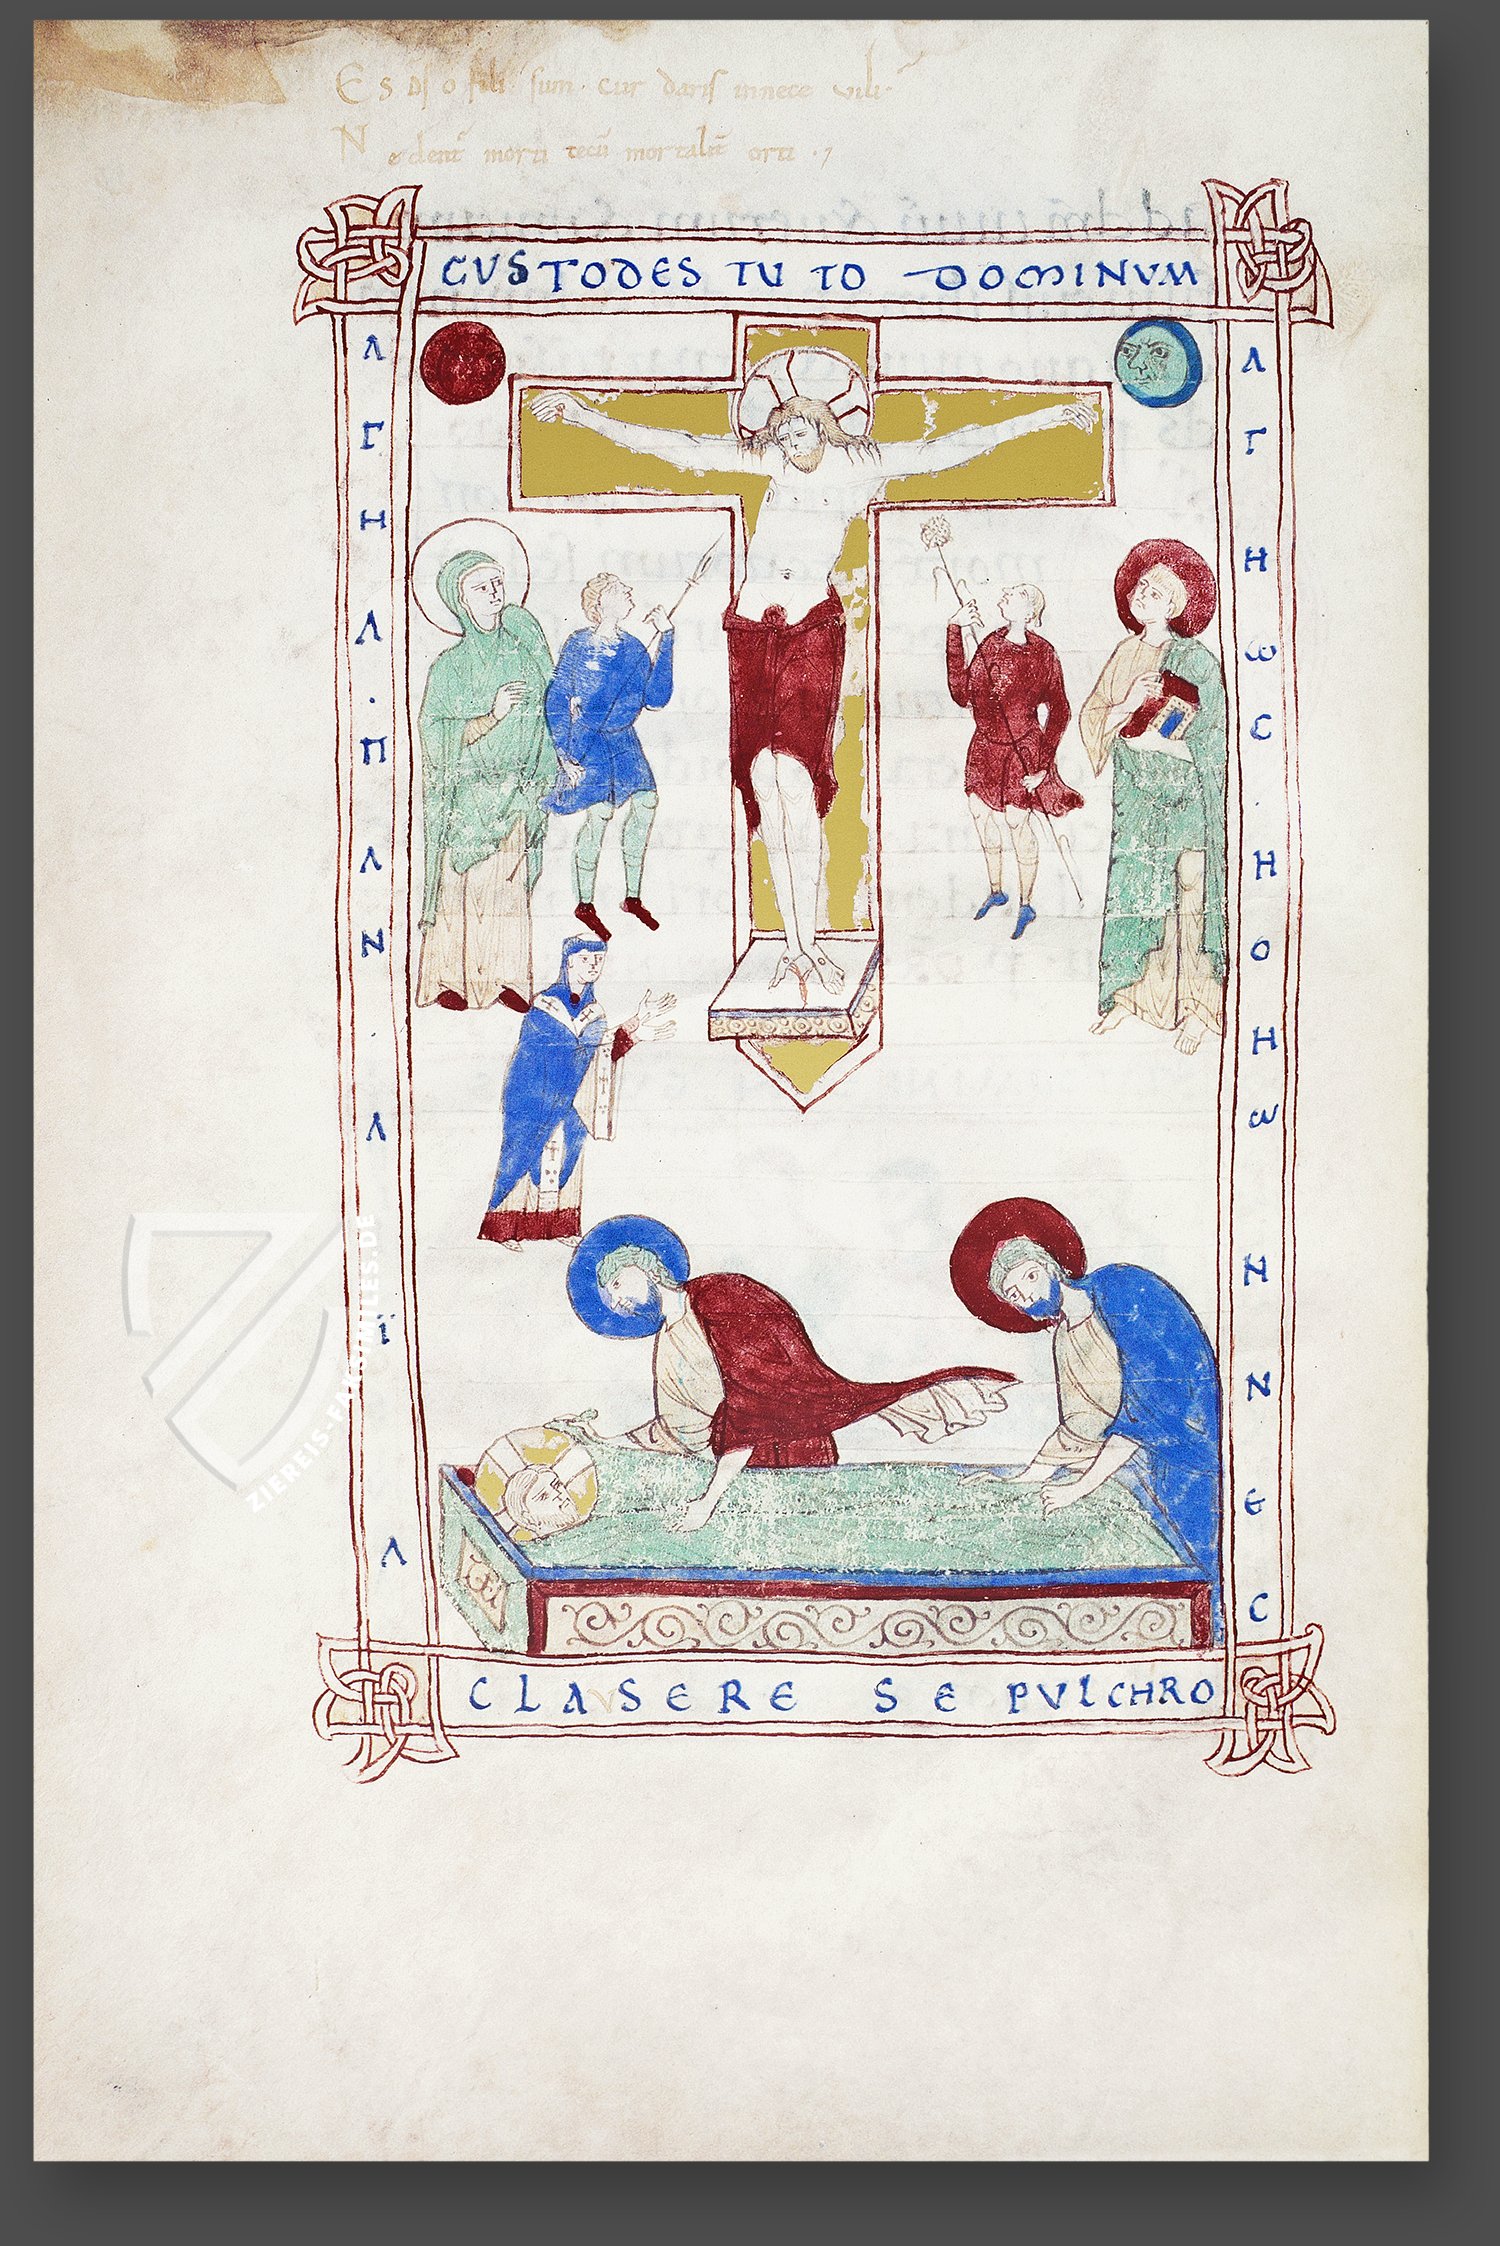 Es dˉs o fili sum· cur daris in nece vili·
Ne dentˉ morti tecuˉ mortalitˉ orti ·7
CUSTODES TU TO DOMINVM
Λ Γ Η Λ · Π Λ Ν · Λ Ϊ Λ
Λ Γ Η Ѡ C · Η Ο Η Ѡ Ν Ν Є C
CLASERE SEPVLCHRO
ZIEREIS-FACSIMILES.DE